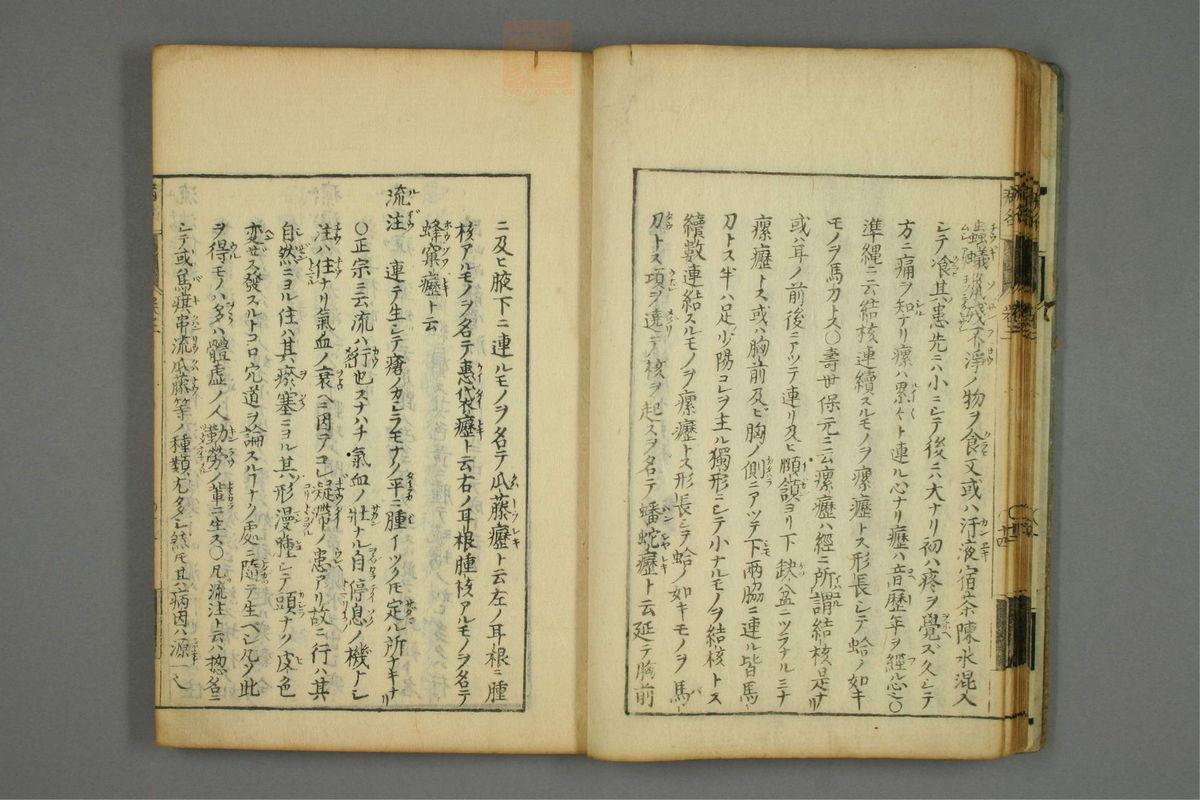 蟲蟻 殘不淨ノ物ヲ食又或ハ汗液宿茶陳水混入
シテ食其患先ニハ小ニシテ後ニハ大ナリ初ハ疼ヲ覺ズ久シテ
方ニ痛ヲ知ナリ瘰ハ累々ト連ル心ナリ癧ハ音歴年ヲ經ル心〇
準縄ニ云結核連續スルモノヲ瘰癧トス形長シテ蛤ノ如キ
モノヲ馬刀トス〇壽世保元ニ云瘰癧ハ經ニ所謂結核是ナリ
或ハ耳ノ前後ニアツテ連リ及ヒ頤頷ヨリ下缺盆ニツラナルミナ
瘰癧トス或ハ胸前及ヒ胸ノ側ニアツテ下兩脇ニ連ル皆馬
刀トス手ハ足少陽コレヲ主ル獨形ニシテ小ナルモノヲ結核トス
續數連結スルモノヲ瘰癧トス形長シテ蛤ノ如キモノヲ馬
刀トス項ヲ遶テ核ヲ起スヲ名テ蟠蛇癧ト云延テ胸前
ニ及ヒ腋下ニ連ルモノヲ名テ瓜藤癧ト云左ノ耳根ニ腫
核アルモノヲ名テ惠袋癧ト云右ノ耳根腫核アルモノヲ名テ
蜂窠癧ト云
流注 連テ生シテ瘡ノカシラモナク平ニ腫イツクモ定ル所ナキナリ
〇正宗ニ云流ハ行也スナハチ氣血ノ壯ナル自停息ノ機ナシ
注ハ住ナリ氣血ノ衰ヘニ因テコレ凝滯患アリ故ニ行ハ其
自然ニヨル住ハ其瘀塞ニヨル其形漫腫シテ頭ナク皮色
変セス發スルトコロ穴道ヲ論スルナク處ニ隨テ生ベシ凡ソ此
ヲ得モノハ多ハ體虚ノ人勤勞ノ輩ニ生ス〇凡流注ト云ハ惣名ニ
シテ或馬旗串流瓜藤等ノ種類尤多シ然モ其病因ハ源一